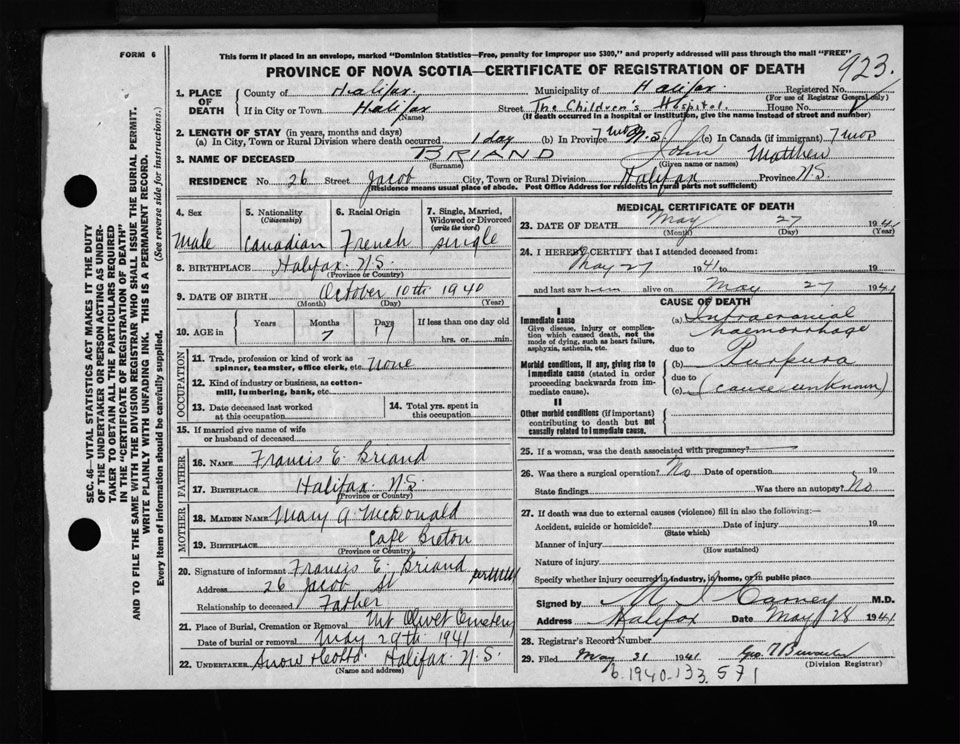 FORM 6
This form if placed in an envelope, marked "Dominion Statistics—Free, penalty for improper use $300," and properly addressed will pass through the mail "FREE"
PROVINCE OF NOVA SCOTIA—CERTIFICATE OF REGISTRATION OF DEATH
923.
1. PLACE OF DEATH
County of Halifax. Municipality of Halifax. Registered No.
(For use of Registrar General only)
If in City or Town Halifax Street The Children's Hospital. House No.
(Name) (If death occurred in a hospital or institution, give the name instead of street and number)
2. LENGTH OF STAY (in years, months and days)
(a) In City, Town or Rural Division where death occurred 1 day (b) In Province 7 mos N.S. (c) In Canada (if immigrant) 7 mos
3. NAME OF DECEASED BRIAND John Matthew
(Surname) (Given name or names)
RESIDENCE No. 26 Street Jacob City, Town or Rural Division Halifax Province N.S.
(Residence means usual place of abode. Post Office Address for residents in rural parts not sufficient)
4. Sex Male
5. Nationality (Citizenship) Canadian
6. Racial Origin French
7. Single, Married, Widowed or Divorced (write the word) single
8. BIRTHPLACE Halifax N.S.
(Province or Country)
9. DATE OF BIRTH October 10th 1940
(Month) (Day) (Year)
10. AGE in Years Months Days If less than one day old
7 hrs. or min.
OCCUPATION
11. Trade, profession or kind of work as spinner, teamster, office clerk, etc. None
12. Kind of industry or business, as cotton-mill, lumbering, bank, etc.
13. Date deceased last worked at this occupation
14. Total yrs. spent in this occupation
15. If married give name of wife or husband of deceased
FATHER
16. NAME Francis E. Briand
17. BIRTHPLACE Halifax N.S.
(Province or Country)
MOTHER
18. MAIDEN NAME Mary A McDonald
19. BIRTHPLACE Cape Breton
(Province or Country)
20. Signature of informant Francis E. Briand
Address 26 Jacob St
Relationship to deceased Father
21. Place of Burial, Cremation or Removal Mt Olivet Cemetery
Date of burial or removal May 29th 1941
22. UNDERTAKER Snow & Co Ltd. Halifax N.S.
(Name and address)
MEDICAL CERTIFICATE OF DEATH
23. DATE OF DEATH May 27 1941
(Month) (Day) (Year)
24. I HEREBY CERTIFY that I attended deceased from:
May 27 1941 to 19
and last saw him alive on May 27 1941
CAUSE OF DEATH
I
Immediate cause
Give disease, injury or complication which caused death, not the mode of dying, such as heart failure, asphyxia, asthenia, etc.
(a) Intracranial haemorrhage
due to
Morbid conditions, if any, giving rise to immediate cause (stated in order proceeding backwards from immediate cause).
(b) Purpura
due to
(c) (cause unknown)
II
Other morbid conditions (if important) contributing to death but not causally related to immediate cause.
25. If a woman, was the death associated with pregnancy?
26. Was there a surgical operation? No Date of operation 19
State findings Was there an autopsy? No
27. If death was due to external causes (violence) fill in also the following:—
Accident, suicide or homicide? Date of injury 19
(State which)
Manner of injury
(How sustained)
Nature of injury
Specify whether injury occurred in industry, in home, or in public place
Signed by M J Carney M.D.
Address Halifax Date May 28 1941
28. Registrar's Record Number
29. Filed May 31 1941
(Division Registrar)
b. 1940-133.571
SEC. 46—VITAL STATISTICS ACT MAKES IT THE DUTY
OF THE UNDERTAKER OR PERSON ACTING AS UNDER-
TAKER TO OBTAIN ALL THE PARTICULARS REQUIRED
IN THE "CERTIFICATE OF REGISTRATION OF DEATH"
AND TO FILE THE SAME WITH THE DIVISION REGISTRAR WHO SHALL ISSUE THE BURIAL PERMIT.
WRITE PLAINLY WITH UNFADING INK. THIS IS A PERMANENT RECORD.
Every item of information should be carefully supplied. (See reverse side for instructions.)